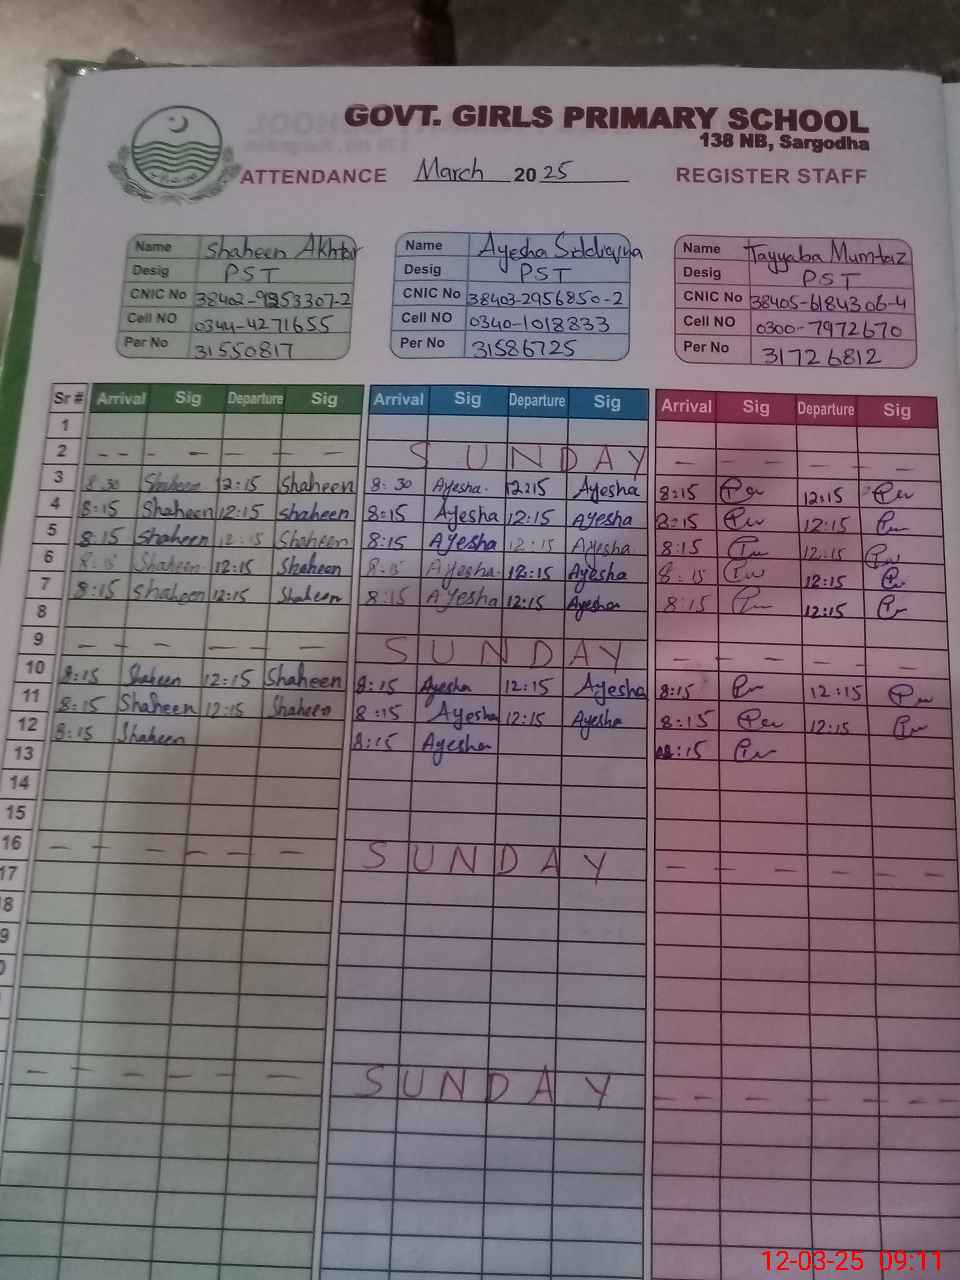 GOVT. GIRLS PRIMARY SCHOOL
138 NB, Sargodha
ATTENDANCE March 2025 REGISTER STAFF
Name Shaheen Akhtar Name Ayesha Name Tayyaba Mumtaz
Desig PST Desig PST Desig PST
CNIC No CNIC No 38403-2956850-2 CNIC No 38405-6184306-4
Cell NO 0344-4271655 Cell NO 0340-1018833 Cell NO 0300-7972670
Per No 31550817 Per No 31586725 Per No 31726812
Sr # Arrival Sig Departure Sig Arrival Sig Departure Sig Arrival Sig Departure Sig
1
2 SUNDAY
3 8:30 Shaheen 12:15 Shaheen 8:30 Ayesha 12:15 Ayesha 8:15 12:15
4 8:15 Shaheen 12:15 Shaheen 8:15 Ayesha 12:15 Ayesha 8:15 12:15
5 8:15 Shaheen 12:15 Shaheen 8:15 Ayesha 12:15 Ayesha 8:15 12:15
6 8:15 Shaheen 12:15 Shaheen 8:15 Ayesha 12:15 Ayesha 8:15 12:15
7 8:15 Shaheen 12:15 Shaheen 8:15 Ayesha 12:15 Ayesha 8:15 12:15
8
9 SUNDAY
10 8:15 Shaheen 12:15 Shaheen 8:15 Ayesha 12:15 Ayesha 8:15 12:15
11 8:15 Shaheen 12:15 Shaheen 8:15 Ayesha 12:15 Ayesha 8:15 12:15
12 8:15 Shaheen 8:15 Ayesha 8:15
13
14
15
16 SUNDAY
17
8
9
SUNDAY
12-03-25 09:11